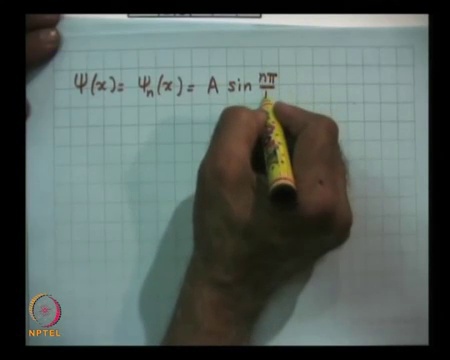 Ψ(x) = Ψn(x) = A sin nπ
NPTEL